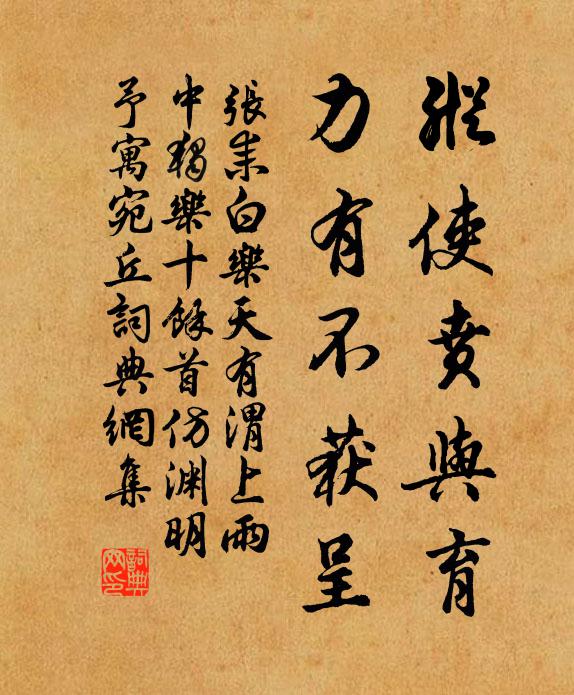 縱使賁與育
力有不获呈
張耒白樂天有渭上雨
中獨樂十餘首仿渊明
予寓宛丘詞典網集
詞典網印